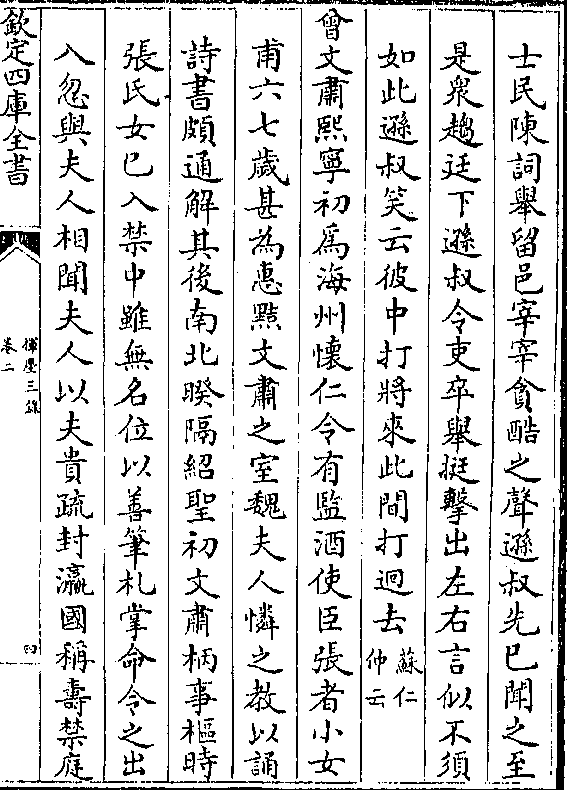 士民陳詞舉留邑宰宰貪酷之聲遜叔先已聞之至
是衆趨廷下遜叔令吏卒舉挺擊出左右言似不須
如此遜叔笑云彼中打將來此間打迴去蘇仁仲云
曾文肅熙寧初為海州懷仁令有監酒使臣張者小女
甫六七歲甚為惠黠文肅之室魏夫人憐之教以誦
詩書頗通解其後南北暌隔紹聖初文肅柄事樞時
張氏女已入禁中雖無名位以善筆札掌命令之出
入忽與夫人相聞夫人以夫貴疏封瀛國稱壽禁庭
欽定四庫全書
揮麈三錄
卷二
四